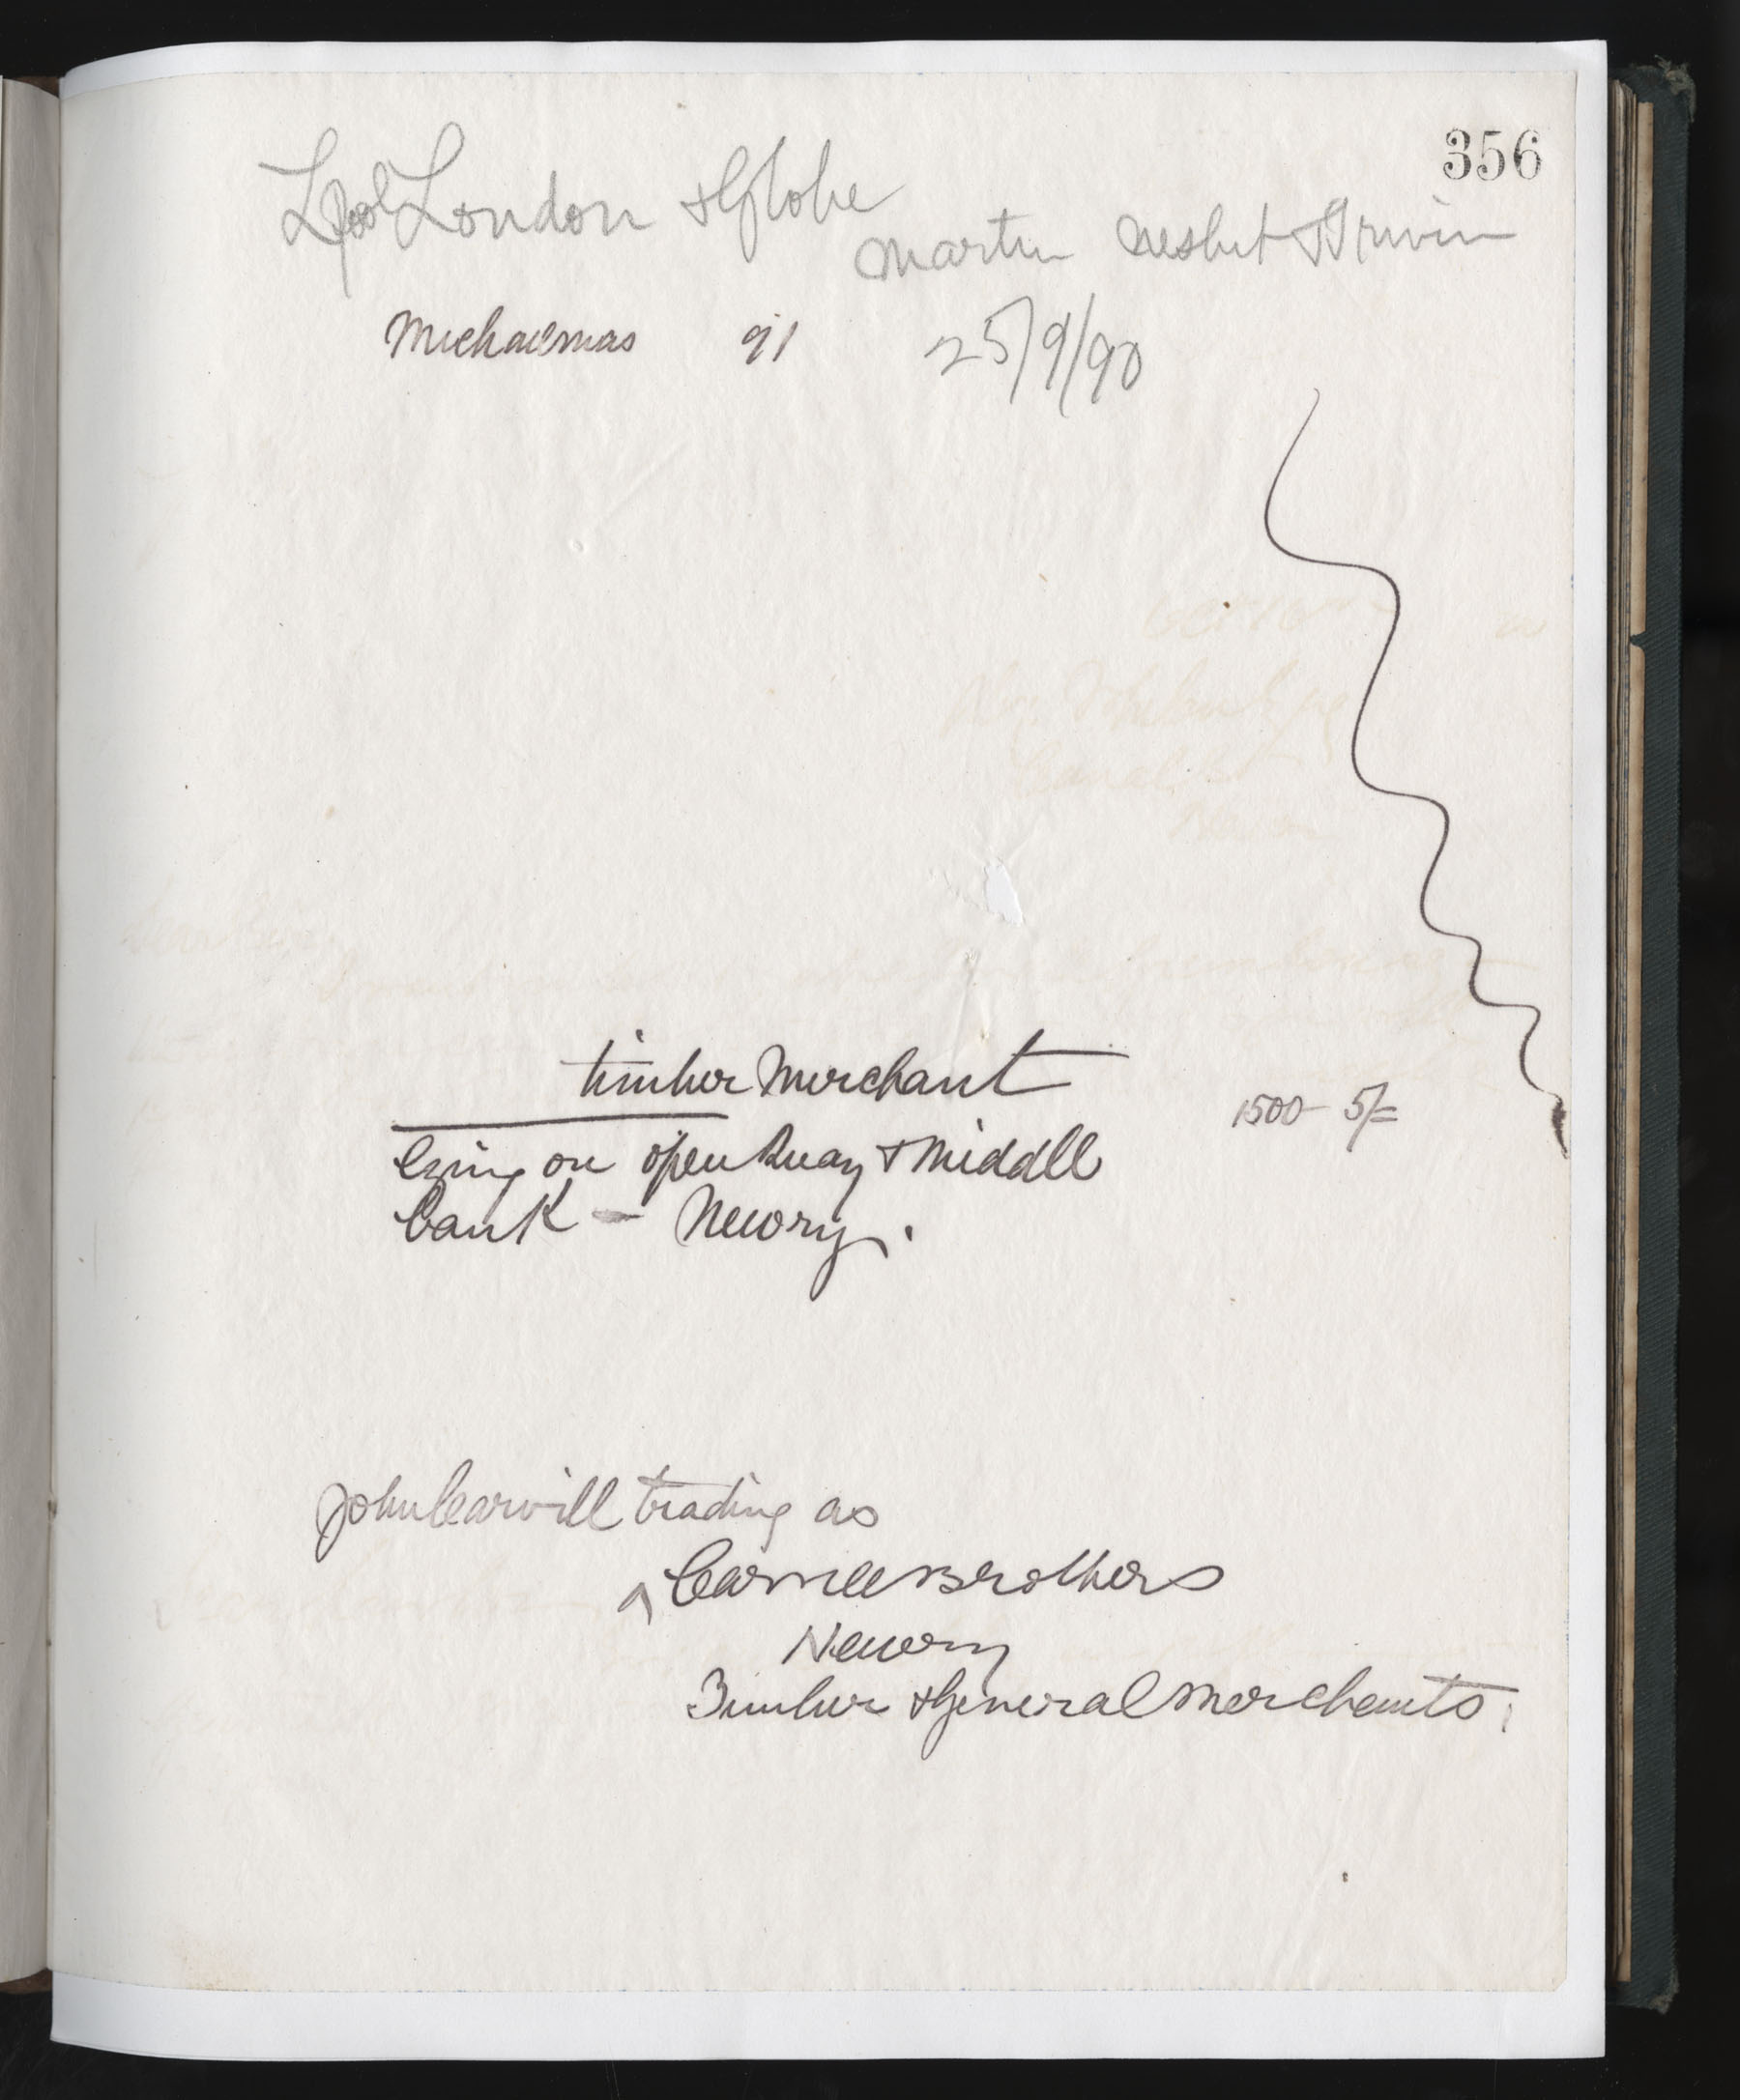 356
Lpool London & Globe
Martin Nesbit & Irwin
Michaelmas 91 25/9/90
timber Merchant
1500 - 5/=
lying on open Quay & Middle
bank - Newry.
John Carvill trading as
^ Carvill Brothers
Newry
Timber & General Merchants